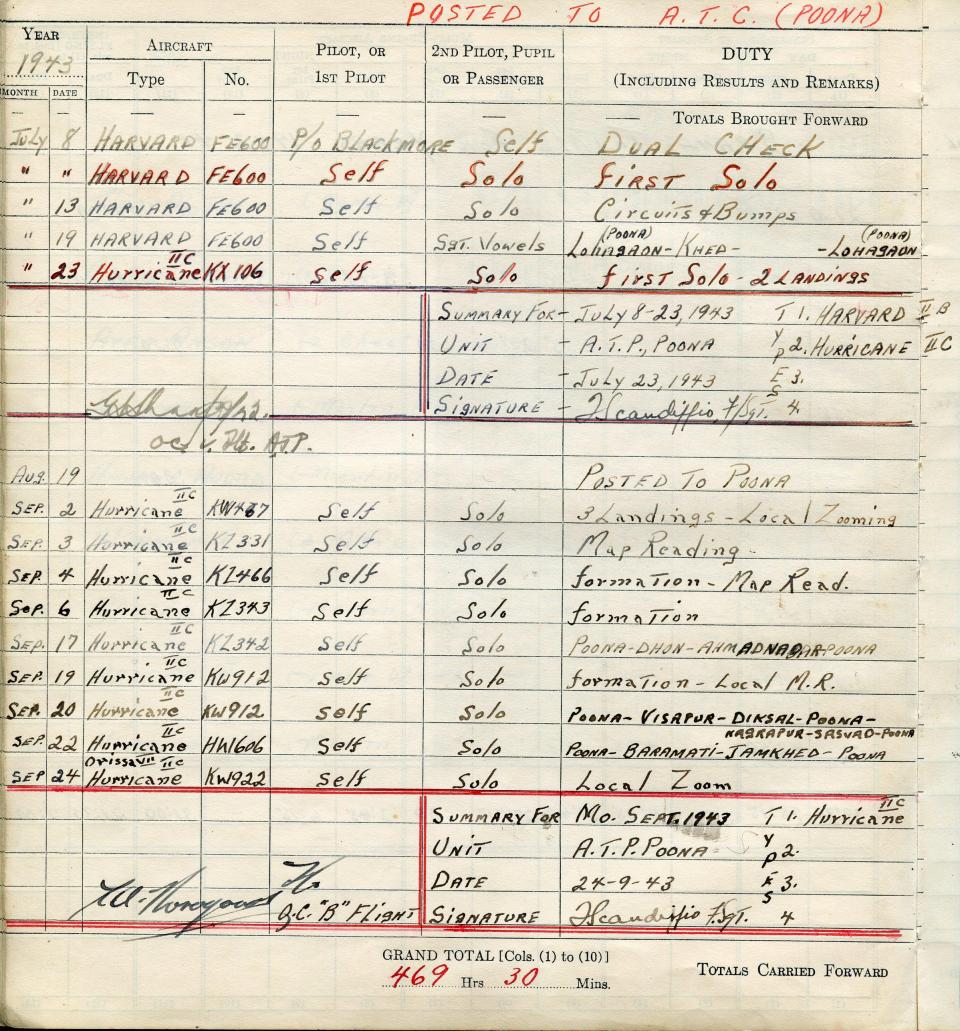 POSTED TO A.T.C. (POONA)
YEAR AIRCRAFT PILOT, OR 2ND PILOT, PUPIL DUTY
1943 Type No. 1ST PILOT OR PASSENGER (INCLUDING RESULTS AND REMARKS)
MONTH DATE
— — — — — — TOTALS BROUGHT FORWARD
July 8 HARVARD FE600 P/O BLACKMORE Self DUAL CHECK
" " HARVARD FE600 Self Solo FIRST Solo
" 13 HARVARD FE600 Self Solo Circuits & Bumps
" 19 HARVARD FE600 Self Sgt. Vowels LOHAGAON (POONA) - KHED - - LOHAGAON (POONA)
" 23 Hurricane IIC KX106 Self Solo FIRST Solo - 2 LANDINGS
SUMMARY FOR - JULY 8-23, 1943 TYPES 1. HARVARD IIB
UNIT - A.T.P., POONA 2. HURRICANE IIC
DATE - July 23, 1943 3.
SIGNATURE - JScandiffio F/Sgt. 4.
A.T.P.
Aug. 19 POSTED TO POONA
SEP. 2 Hurricane IIC KW437 Self Solo 3 Landings - Local Zooming
SEP. 3 Hurricane IIC KZ331 Self Solo Map Reading
SEP. 4 Hurricane IIC KZ466 Self Solo formation - Map Read.
Sep. 6 Hurricane IIC KZ343 Self Solo formation
SEP. 17 Hurricane IIC KZ342 Self Solo POONA-DHON-AHMADNAGAR-POONA
SEP. 19 Hurricane IIC KW912 Self Solo formation - Local M.R.
SEP. 20 Hurricane IIC KW912 Self Solo POONA - VISAPUR - DIKSAL - POONA -
NAGRAPUR - SASVAD - POONA
SEP. 22 Hurricane IIC HW606 Self Solo POONA - BARAMATI - JAMKHED - POONA
Orissa VII
SEP 24 Hurricane IIC KW922 Self Solo Local Zoom
SUMMARY FOR Mo. SEPT. 1943 TYPES 1. Hurricane IIC
UNIT A.T.P. POONA 2.
DATE 24-9-43 3.
O.C. "B" FLIGHT SIGNATURE JScandiffio F/Sgt. 4
GRAND TOTAL [Cols. (1) to (10)]
469 Hrs 30 Mins. TOTALS CARRIED FORWARD